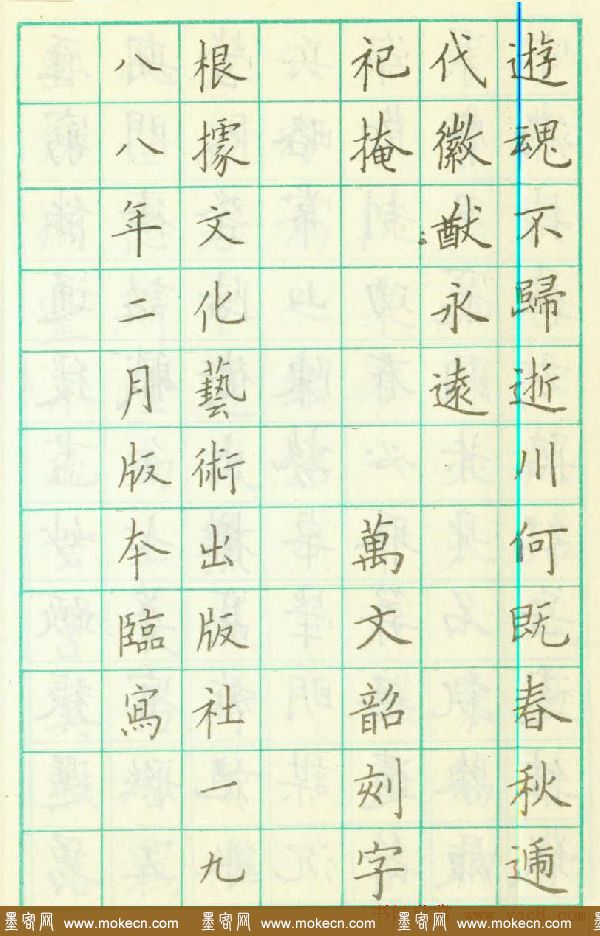 遊魂不歸逝川何旣春秋遞
代徽猷永遠
祀掩 萬文韶刻字
根據文化藝術出版社一九
八八年二月版本臨寫
墨客网 www.mokecn.com 墨客网 www.mokecn.com 墨客网 www.mokecn.com